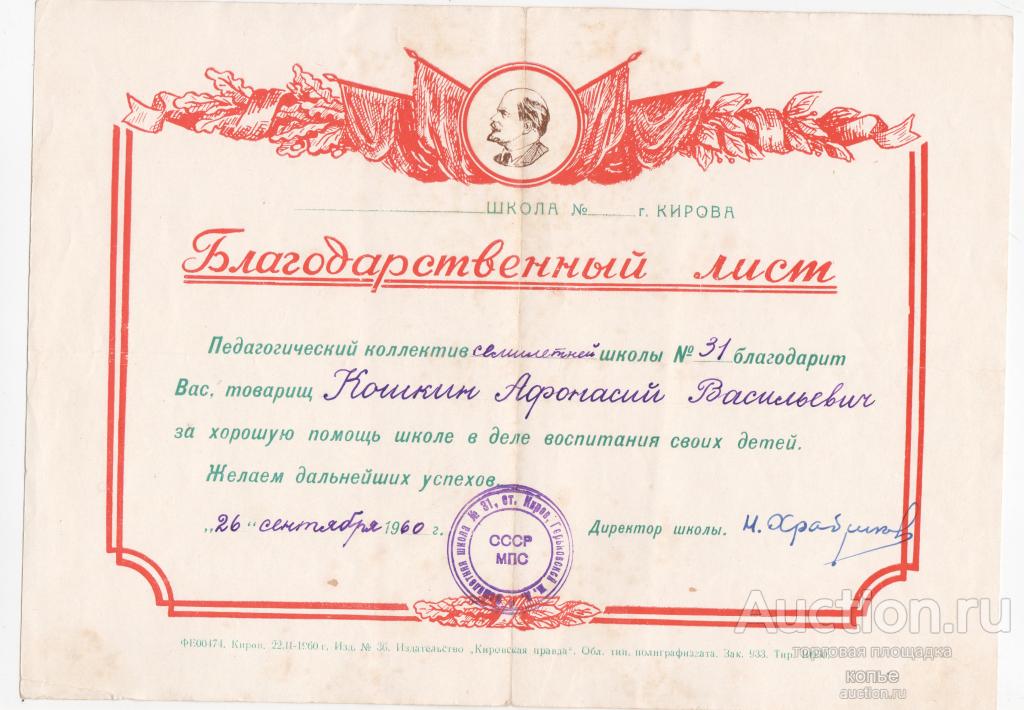 ШКОЛА № г. КИРОВА
Благодарственный лист
Педагогический коллектив семилетней школы № 31 благодарит
Вас, товарищ Кошкин Афонасий Васильевич
за хорошую помощь школе в деле воспитания своих детей.
Желаем дальнейших успехов.
„26" сентября 1960 г. Директор школы. Н. Храбриков
школа № 31, ст. Киров, Горьковской ж. д.
СССР
МПС
ФЕ00474. Киров. 22.II-1960 г. Изд. № 36. Издательство „Кировская правда". Обл. тип. полиграфиздата. Зак. 933. Тир.
Auction.ru
торговая площадка
копье
auction.ru